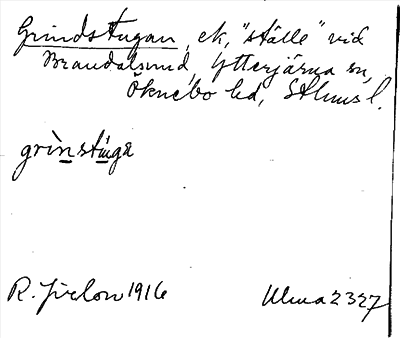 Grindstugan, ek, "ställe" vid
Brandalsund, Ytterjärna sn,
Öknebo hd, Sthlms l.
grìnstúga
R. Jirlow 1916
Ulma 2327